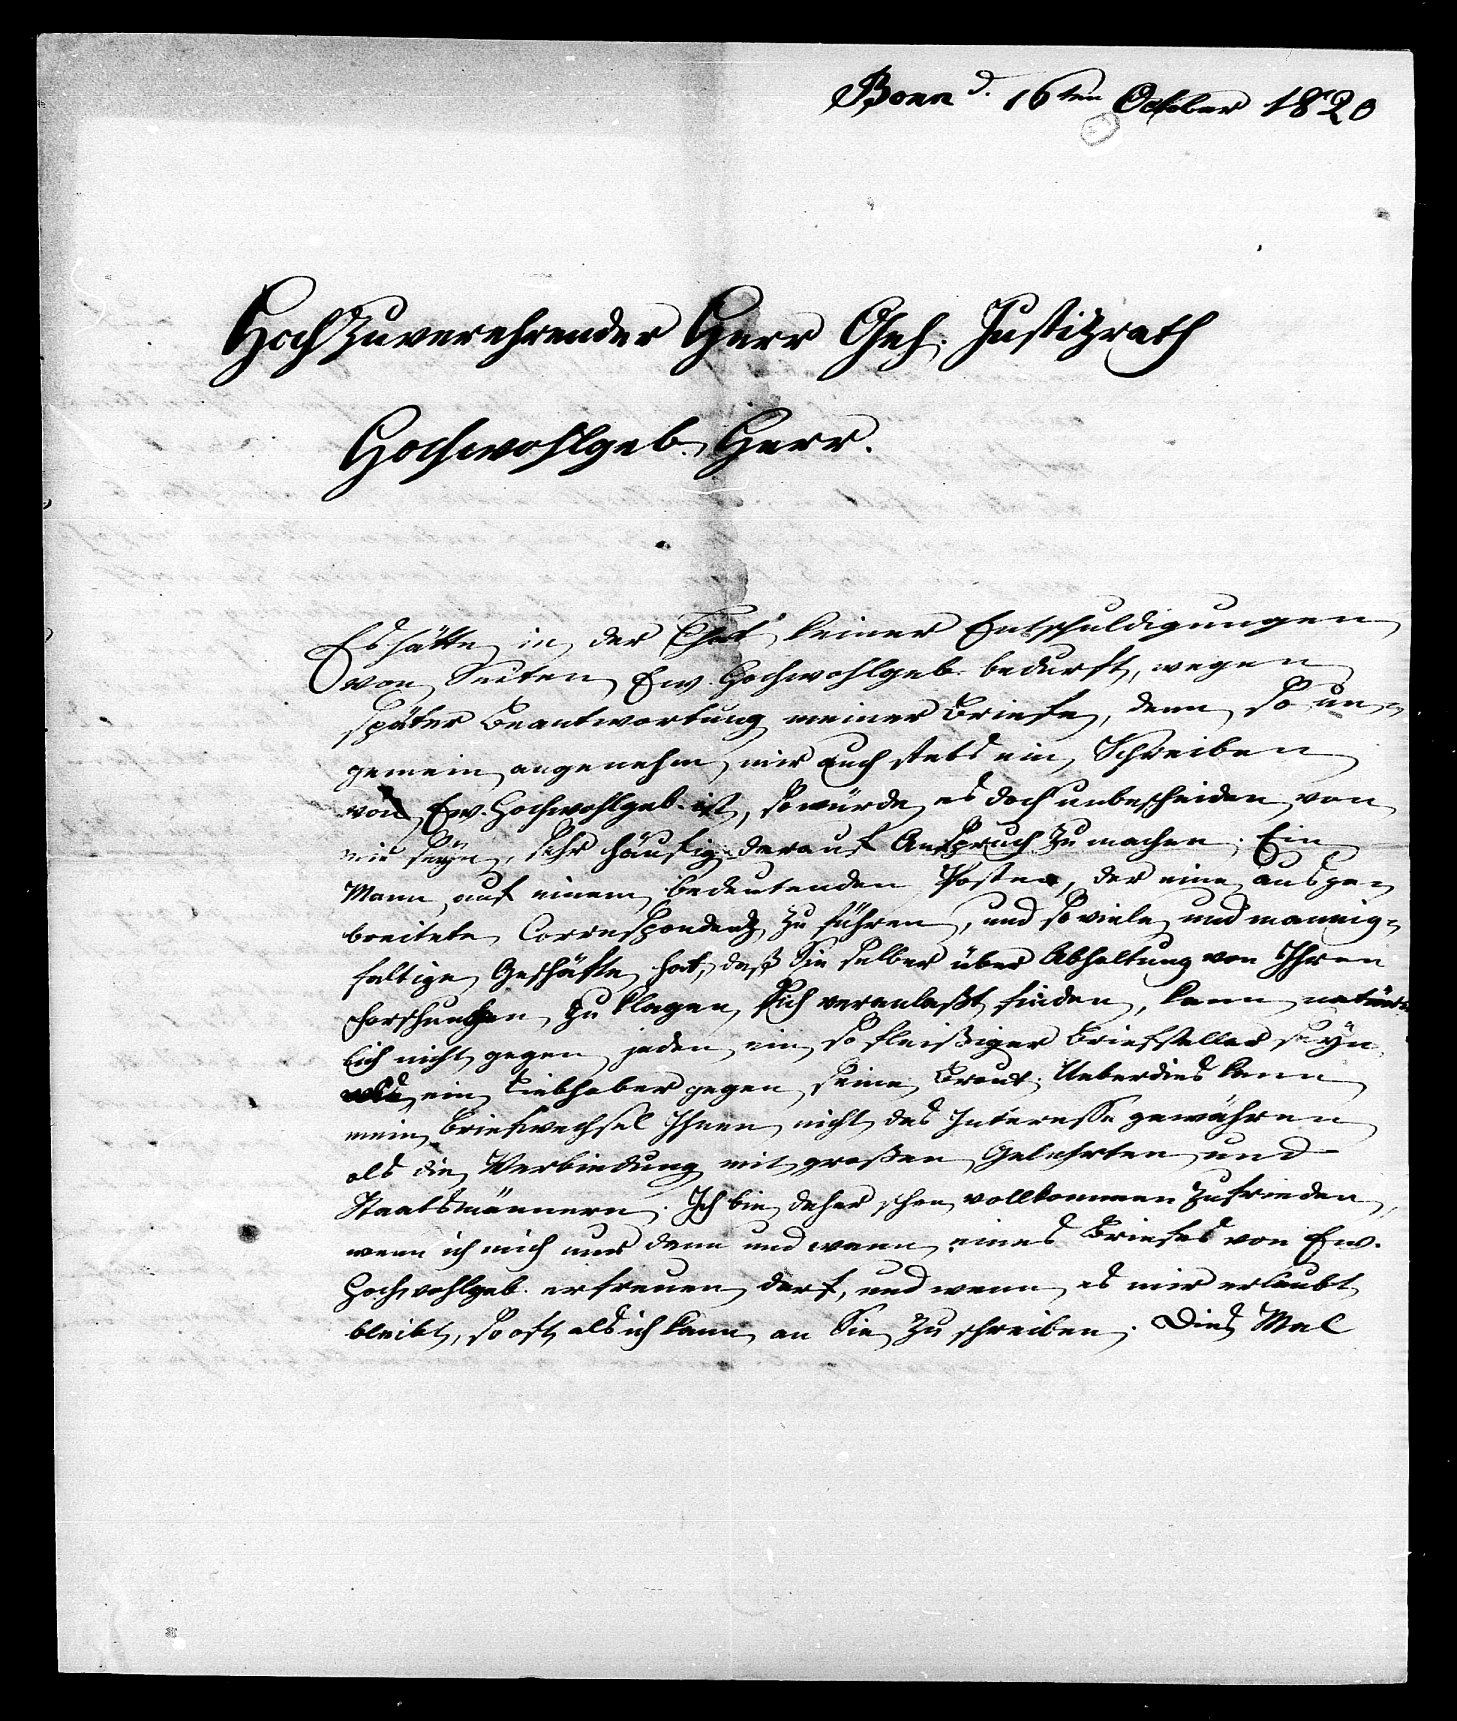 Bonn d. 16ten October 1820
Hochzuverehrender Herr Geh. Justizrath
Hochwohlgeb. Herr.
Es hätte in der That keiner Entschuldigungen
von Seiten Ew. Hochwohlgeb. bedurft, wegen
später Beantwortung meiner Briefe, denn so un-
gemein angenehm mir auch stets ein Schreiben
von Ew. Hochwohlgeb. ist, so würde es doch unbescheiden von
mir seyn, sehr häufig darauf Anspruch zu machen. Ein
Mann auf einem bedeutenden Posten, der eine ausge-
breitete Correspondenz zu führen, und so viele und mannig-
faltige Geschäfte hat, daß Sie selber über Abhaltung von Ihren
Forschungen zu klagen, sich veranlaßt finden, kann natür-
lich nicht gegen jeden ein so fleißiger Briefsteller seyn,
ein Liebhaber gegen seine Braut. Ueberdies kann
mein Briefwechsel Ihnen nicht das Interesse gewähren
als die Verbindung mit großen Gelehrten und
Staatsmännern. Ich bin daher schon vollkommen zufrieden,
wenn ich mich nur dann und wann eines Briefes von Ew.
Hochwohlgeb. erfreuen darf, und wenn es mir erlaubt
bleibt, so oft als ich kann an Sie zu schreiben. Dies Mal